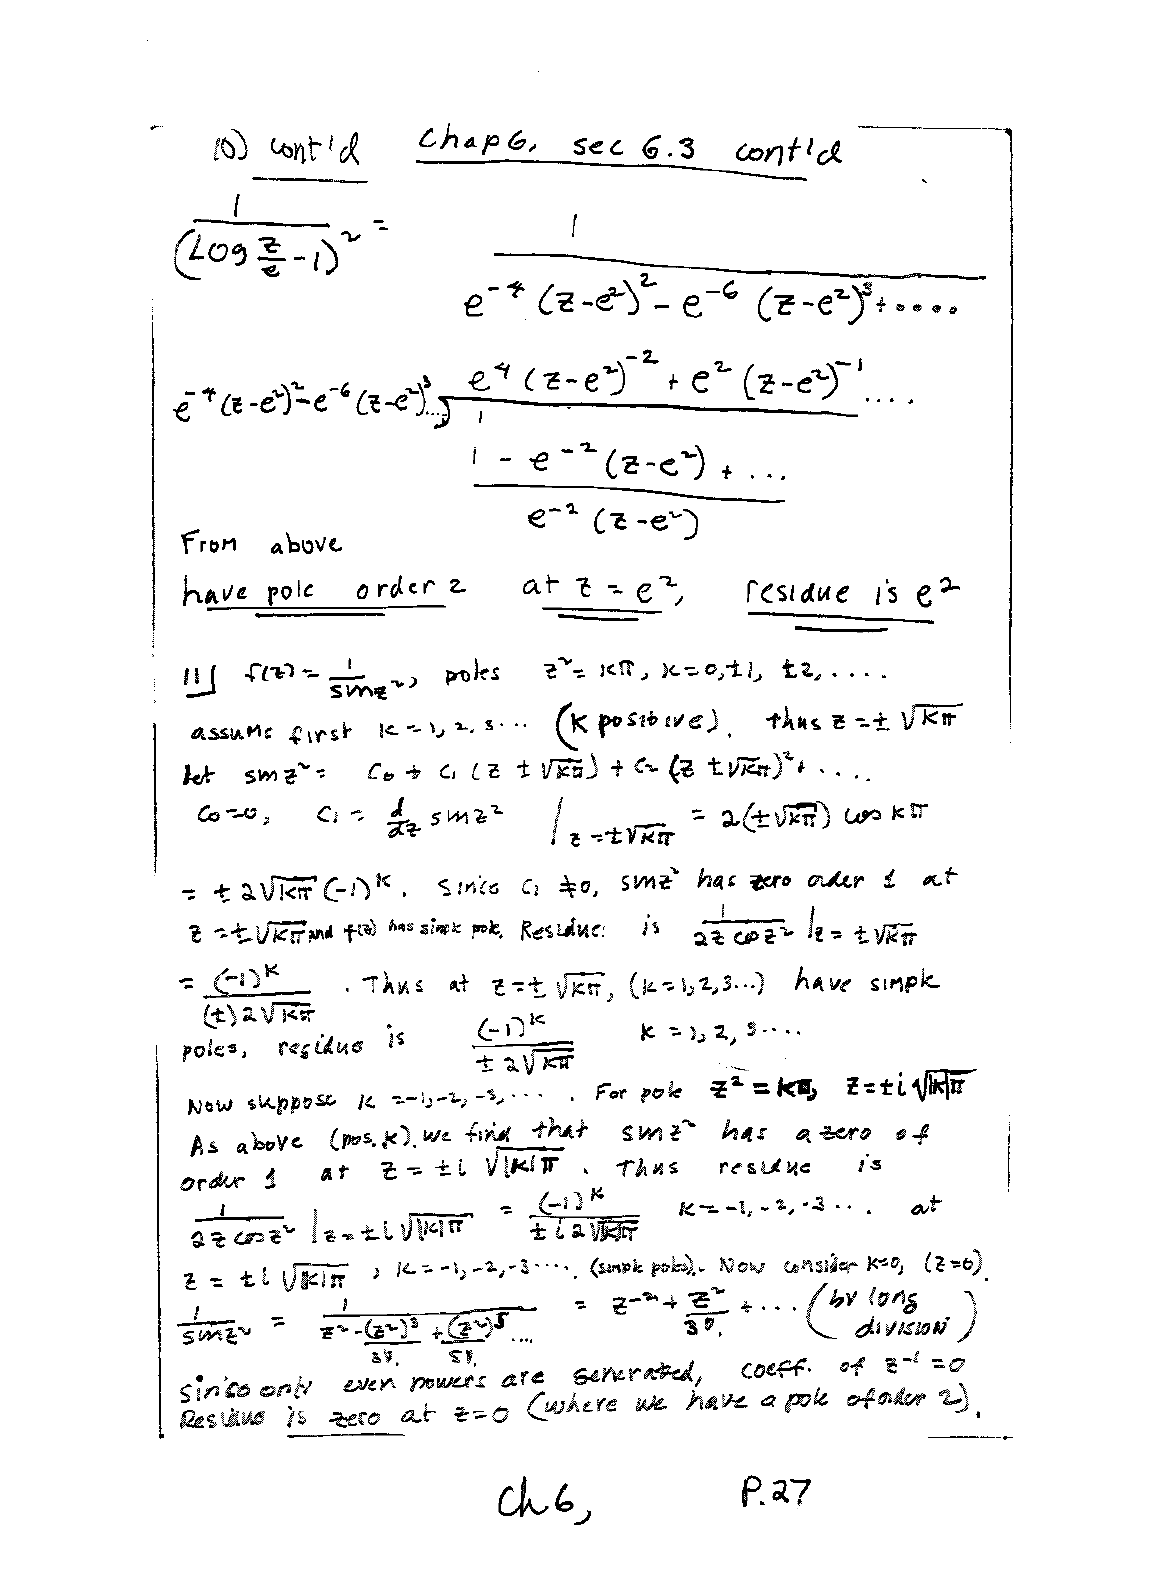 10) cont'd Chap 6, sec 6.3 cont'd
1/(Log z/e - 1)² = 1/(e⁻⁴(z-e²)² - e⁻⁶(z-e²)³ + .....)
e⁴(z-e²)⁻² + e²(z-e²)⁻¹ ....
e⁻⁴(z-e²)² - e⁻⁶(z-e²)³... ) 1
1 - e⁻²(z-e²) + ...
e⁻²(z-e²)
From above
have pole order 2 at z = e², residue is e²
11) f(z) = 1/sin z², poles z² = kπ, k=0, ±1, ±2, ....
assume first k = 1, 2, 3... (k positive). thus z = ± √kπ
let sin z² = c₀ + c₁ (z ± √kπ) + c₂ (z ± √kπ)² + ....
c₀=0, c₁ = d/dz sin z² |z=±√kπ = 2(±√kπ) cos kπ
= ± 2√kπ (-1)ᵏ. Since c₁ ≠ 0, sin z² has zero order 1 at
z = ±√kπ and f(z) has simple pole. Residue: is 1/(2z cos z²) |z = ±√kπ
= (-1)ᵏ/((±)2√kπ). Thus at z = ± √kπ, (k=1,2,3...) have simple
poles, residue is (-1)ᵏ/(± 2√kπ) k = 1, 2, 3....
Now suppose k = -1, -2, -3, .... For pole z² = kπ, z = ±i √|k|π
As above (pos. k). we find that sin z² has a zero of
order 1 at z = ±i √|k|π. Thus residue is
1/(2z cos z²) |z = ±i √|k|π = (-1)ᵏ/(± i 2√|k|π) k = -1, -2, -3 ... at
z = ±i √|k|π, k = -1, -2, -3.... (simple poles). Now consider k=0, (z=0).
1/sin z² = 1/(z² - (z²)³/3! + (z²)⁵/5! ....) = z⁻² + z²/3! + ... (by long division)
Since only even powers are generated, coeff. of z⁻¹ = 0
Residue is zero at z=0 (where we have a pole of order 2).
Ch 6, P.27